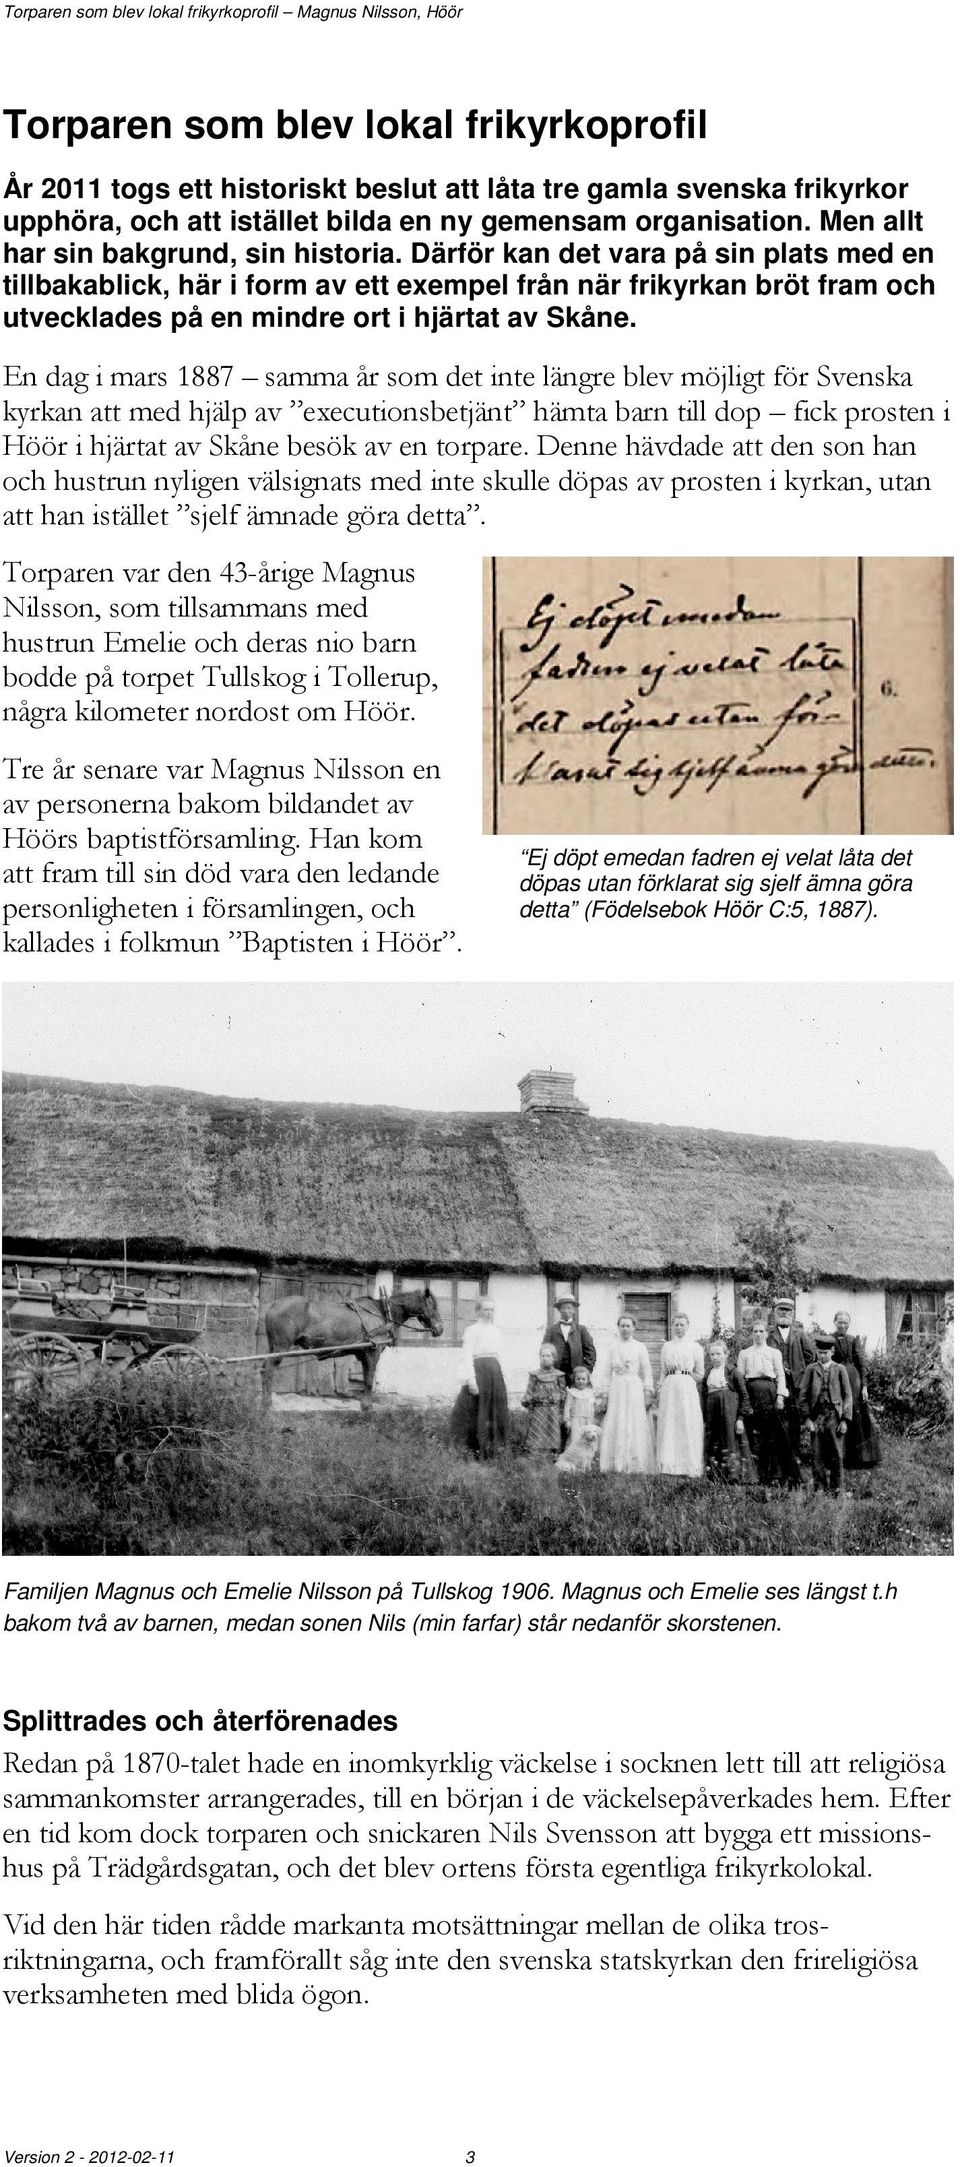 Torparen som blev lokal frikyrkoprofil – Magnus Nilsson, Höör
Torparen som blev lokal frikyrkoprofil
År 2011 togs ett historiskt beslut att låta tre gamla svenska frikyrkor
upphöra, och att istället bilda en ny gemensam organisation. Men allt
har sin bakgrund, sin historia. Därför kan det vara på sin plats med en
tillbakablick, här i form av ett exempel från när frikyrkan bröt fram och
utvecklades på en mindre ort i hjärtat av Skåne.
En dag i mars 1887 – samma år som det inte längre blev möjligt för Svenska
kyrkan att med hjälp av ”executionsbetjänt” hämta barn till dop – fick prosten i
Höör i hjärtat av Skåne besök av en torpare. Denne hävdade att den son han
och hustrun nyligen välsignats med inte skulle döpas av prosten i kyrkan, utan
att han istället ”sjelf ämnade göra detta”.
Torparen var den 43-årige Magnus
Nilsson, som tillsammans med
hustrun Emelie och deras nio barn
bodde på torpet Tullskog i Tollerup,
några kilometer nordost om Höör.
Tre år senare var Magnus Nilsson en
av personerna bakom bildandet av
Höörs baptistförsamling. Han kom
att fram till sin död vara den ledande
personligheten i församlingen, och
kallades i folkmun ”Baptisten i Höör”.
Ej döpt emedan
fadren ej velat låta
6.
det döpas utan för-
klarat sig sjelf ämna göra detta.
“Ej döpt emedan fadren ej velat låta det
döpas utan förklarat sig sjelf ämna göra
detta” (Födelsebok Höör C:5, 1887).
Familjen Magnus och Emelie Nilsson på Tullskog 1906. Magnus och Emelie ses längst t.h
bakom två av barnen, medan sonen Nils (min farfar) står nedanför skorstenen.
Splittrades och återförenades
Redan på 1870-talet hade en inomkyrklig väckelse i socknen lett till att religiösa
sammankomster arrangerades, till en början i de väckelsepåverkades hem. Efter
en tid kom dock torparen och snickaren Nils Svensson att bygga ett missions-
hus på Trädgårdsgatan, och det blev ortens första egentliga frikyrkolokal.
Vid den här tiden rådde markanta motsättningar mellan de olika tros-
riktningarna, och framförallt såg inte den svenska statskyrkan den frireligiösa
verksamheten med blida ögon.
Version 2 - 2012-02-11 3